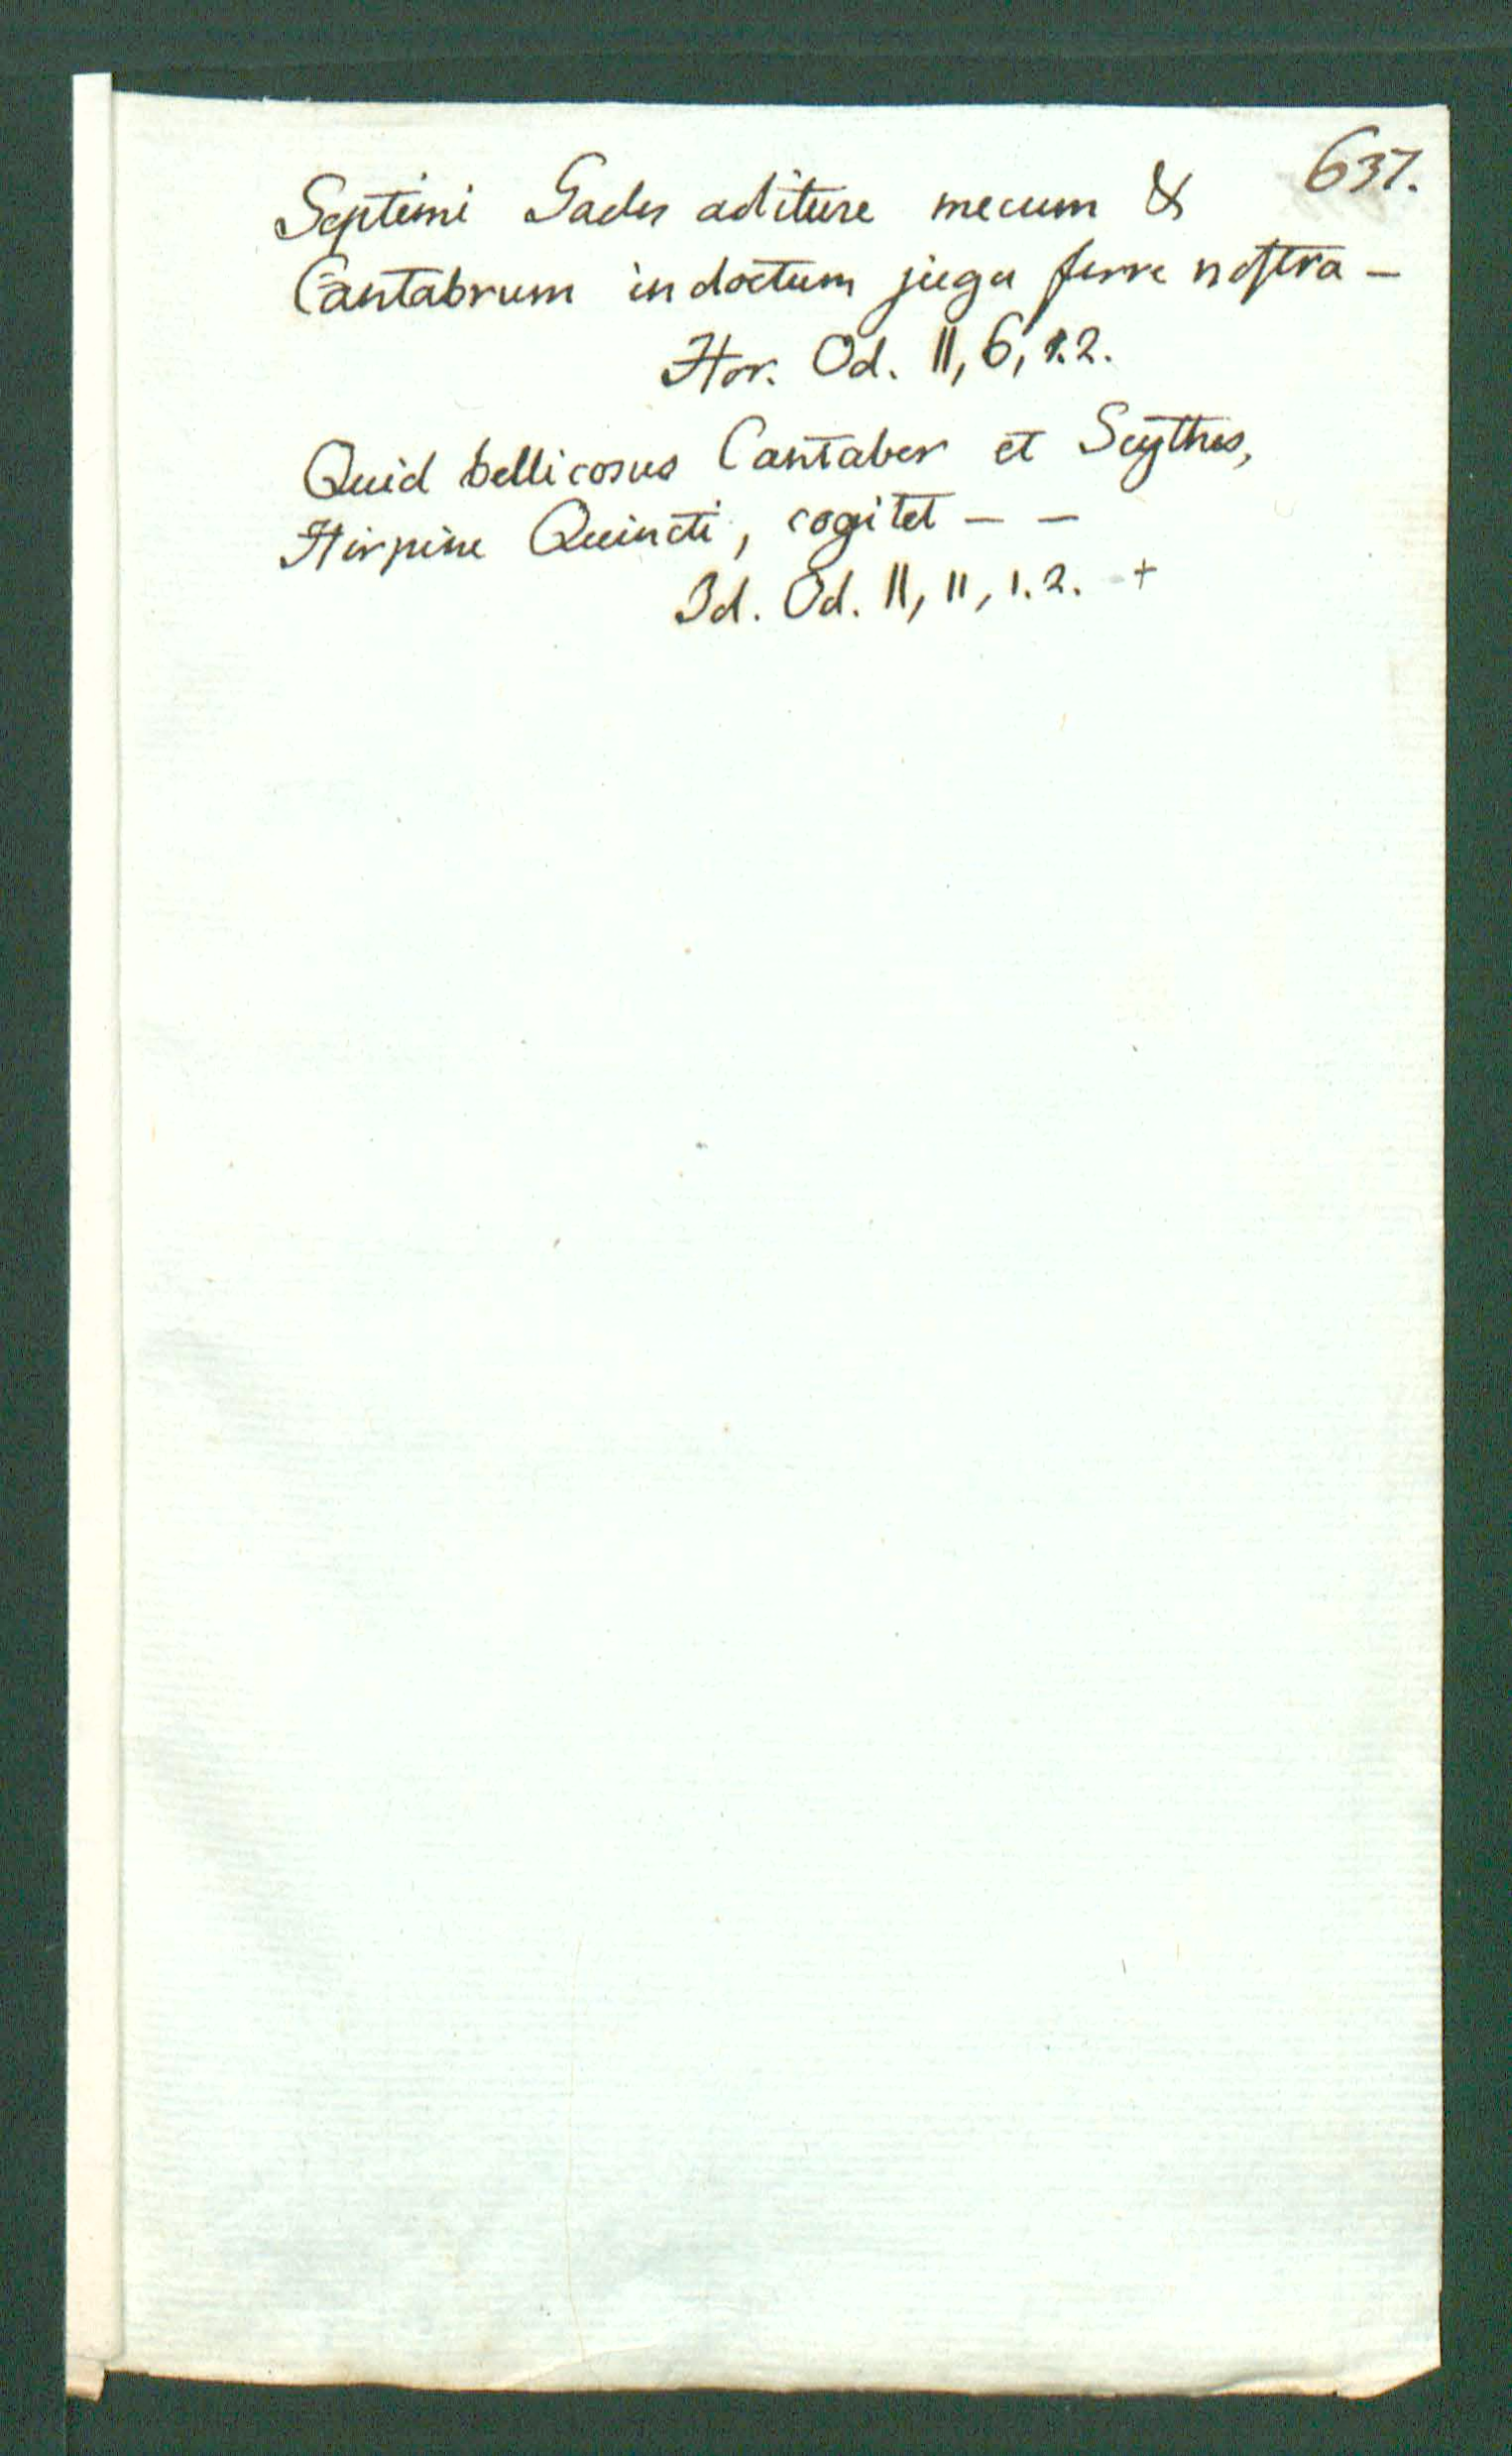 637.
Septimi Gades aditure mecum &
Cantabrum indoctum juga ferre nostra –
Hor. Od. II, 6, 1.2.
Quid bellicosus Cantaber et Scythes,
Hirpine Quincti, cogitet – –
Id. Od. II, 11, 1.2. +